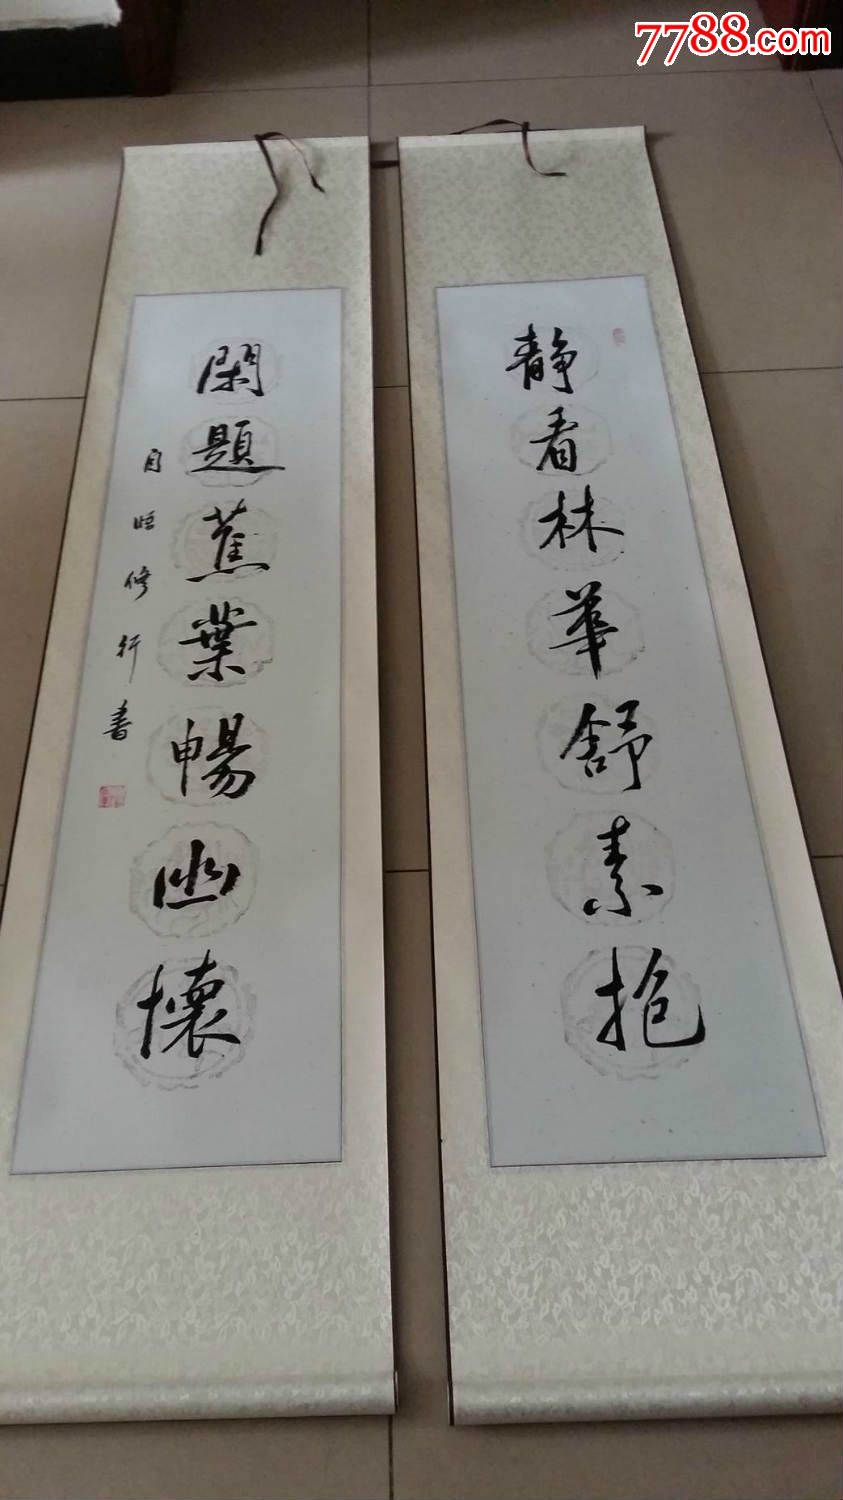 7788.com
静看林華舒素抱
閑題蕉葉暢幽懷
修行書